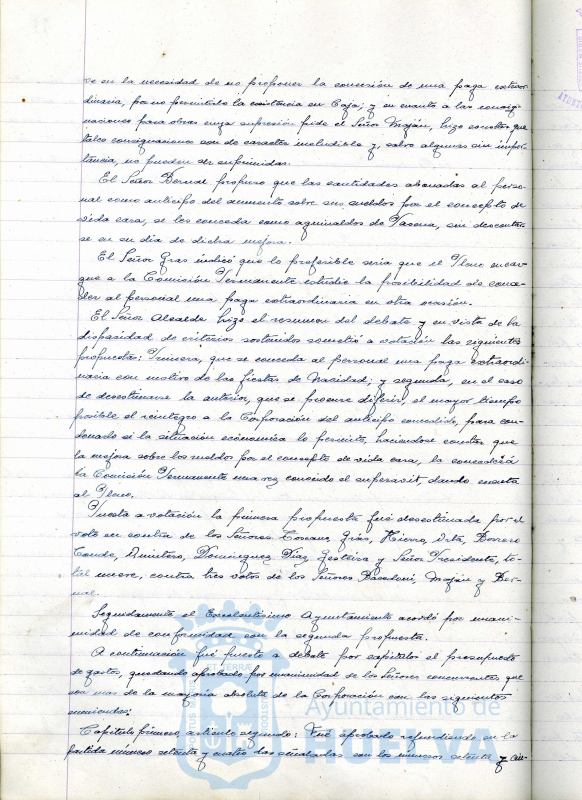 ve en la necesidad de no proponer la concesión de una paga extraor-
dinaria, por no permitirlo la existencia en Caja; y en cuanto a las consig-
naciones para obras cuya supresión pide el Señor Maján, hizo constar que
tales consignaciones son de caracter ineludible y, salvo algunas sin impor-
tancia, no pueden ser suprimidas.
El Señor Bernal propuso que las cantidades abonadas al perso-
nal como anticipo del aumento sobre sus sueldos por el concepto de
vida cara, se les conceda como aguinaldos de Pascua, sin descontar-
se en su dia de dicha mejora.
El Señor Gras indicó que lo preferible seria que el Pleno encar-
gue a la Comisión Permanente estudie la posibilidad de conce-
der al personal una paga extraordinaria en otra ocasión.
El Señor Alcalde hizo el resumen del debate y en vista de la
disparidad de criterios sostenidos sometió a votación las siguientes
propuestas: Primera, que se conceda al personal una paga extraordi-
naria con motivo de las fiestas de Navidad; y segunda, en el caso
de desestimarse la anterior, que se procure diferir, el mayor tiempo
posible el reintegro a la Corporación del anticipo concedido, para con-
donarlo si la situación económica lo permite, haciéndose constar que
la mejora sobre los sueldos por el concepto de vida cara, la concederá
la Comisión Permanente una vez conocido el superavit, dando cuenta
al Pleno.
Puesta a votación la primera propuesta fué desestimada por el
voto en contra de los Señores Gras, Hierro, Borrero
Conde, Quintero, Dominguez Diaz, Gesteira y Señor Presidente, to-
tal nueve, contra tres votos de los Señores Maján y Ber-
nal.
Seguidamente el Excelentísimo Ayuntamiento acordó por unani-
midad de conformidad con la segunda propuesta.
A continuación fué puesto a debate por capítulos el presupuesto
de gastos, quedando aprobado por unanimidad de los Señores concurrentes que
son mas de la mayoría absoluta de la Corporación con las siguientes
enmiendas:
Capítulo primero, artículo segundo: Fué aprobado refundiendo en la
partida número setenta y cuatro las señaladas con los números setenta y cin-
Ayuntamiento de
HUELVA